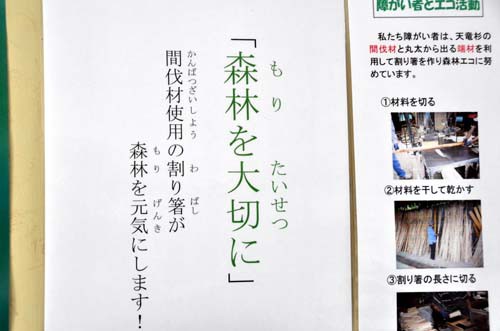 「森林を大切に」
もり
たいせつ
間伐材使用の割り箸が
かんばつざいしよう
わ
ばし
森林を元気にします!
もり
げんき
障がい者とエコ活動
私たち障がい者は、天竜杉の
間伐材と丸太から出る端材を利
用して割り箸を作り森林エコに努
めています。
①材料を切る
②材料を干して乾かす
③割り箸の長さに切る